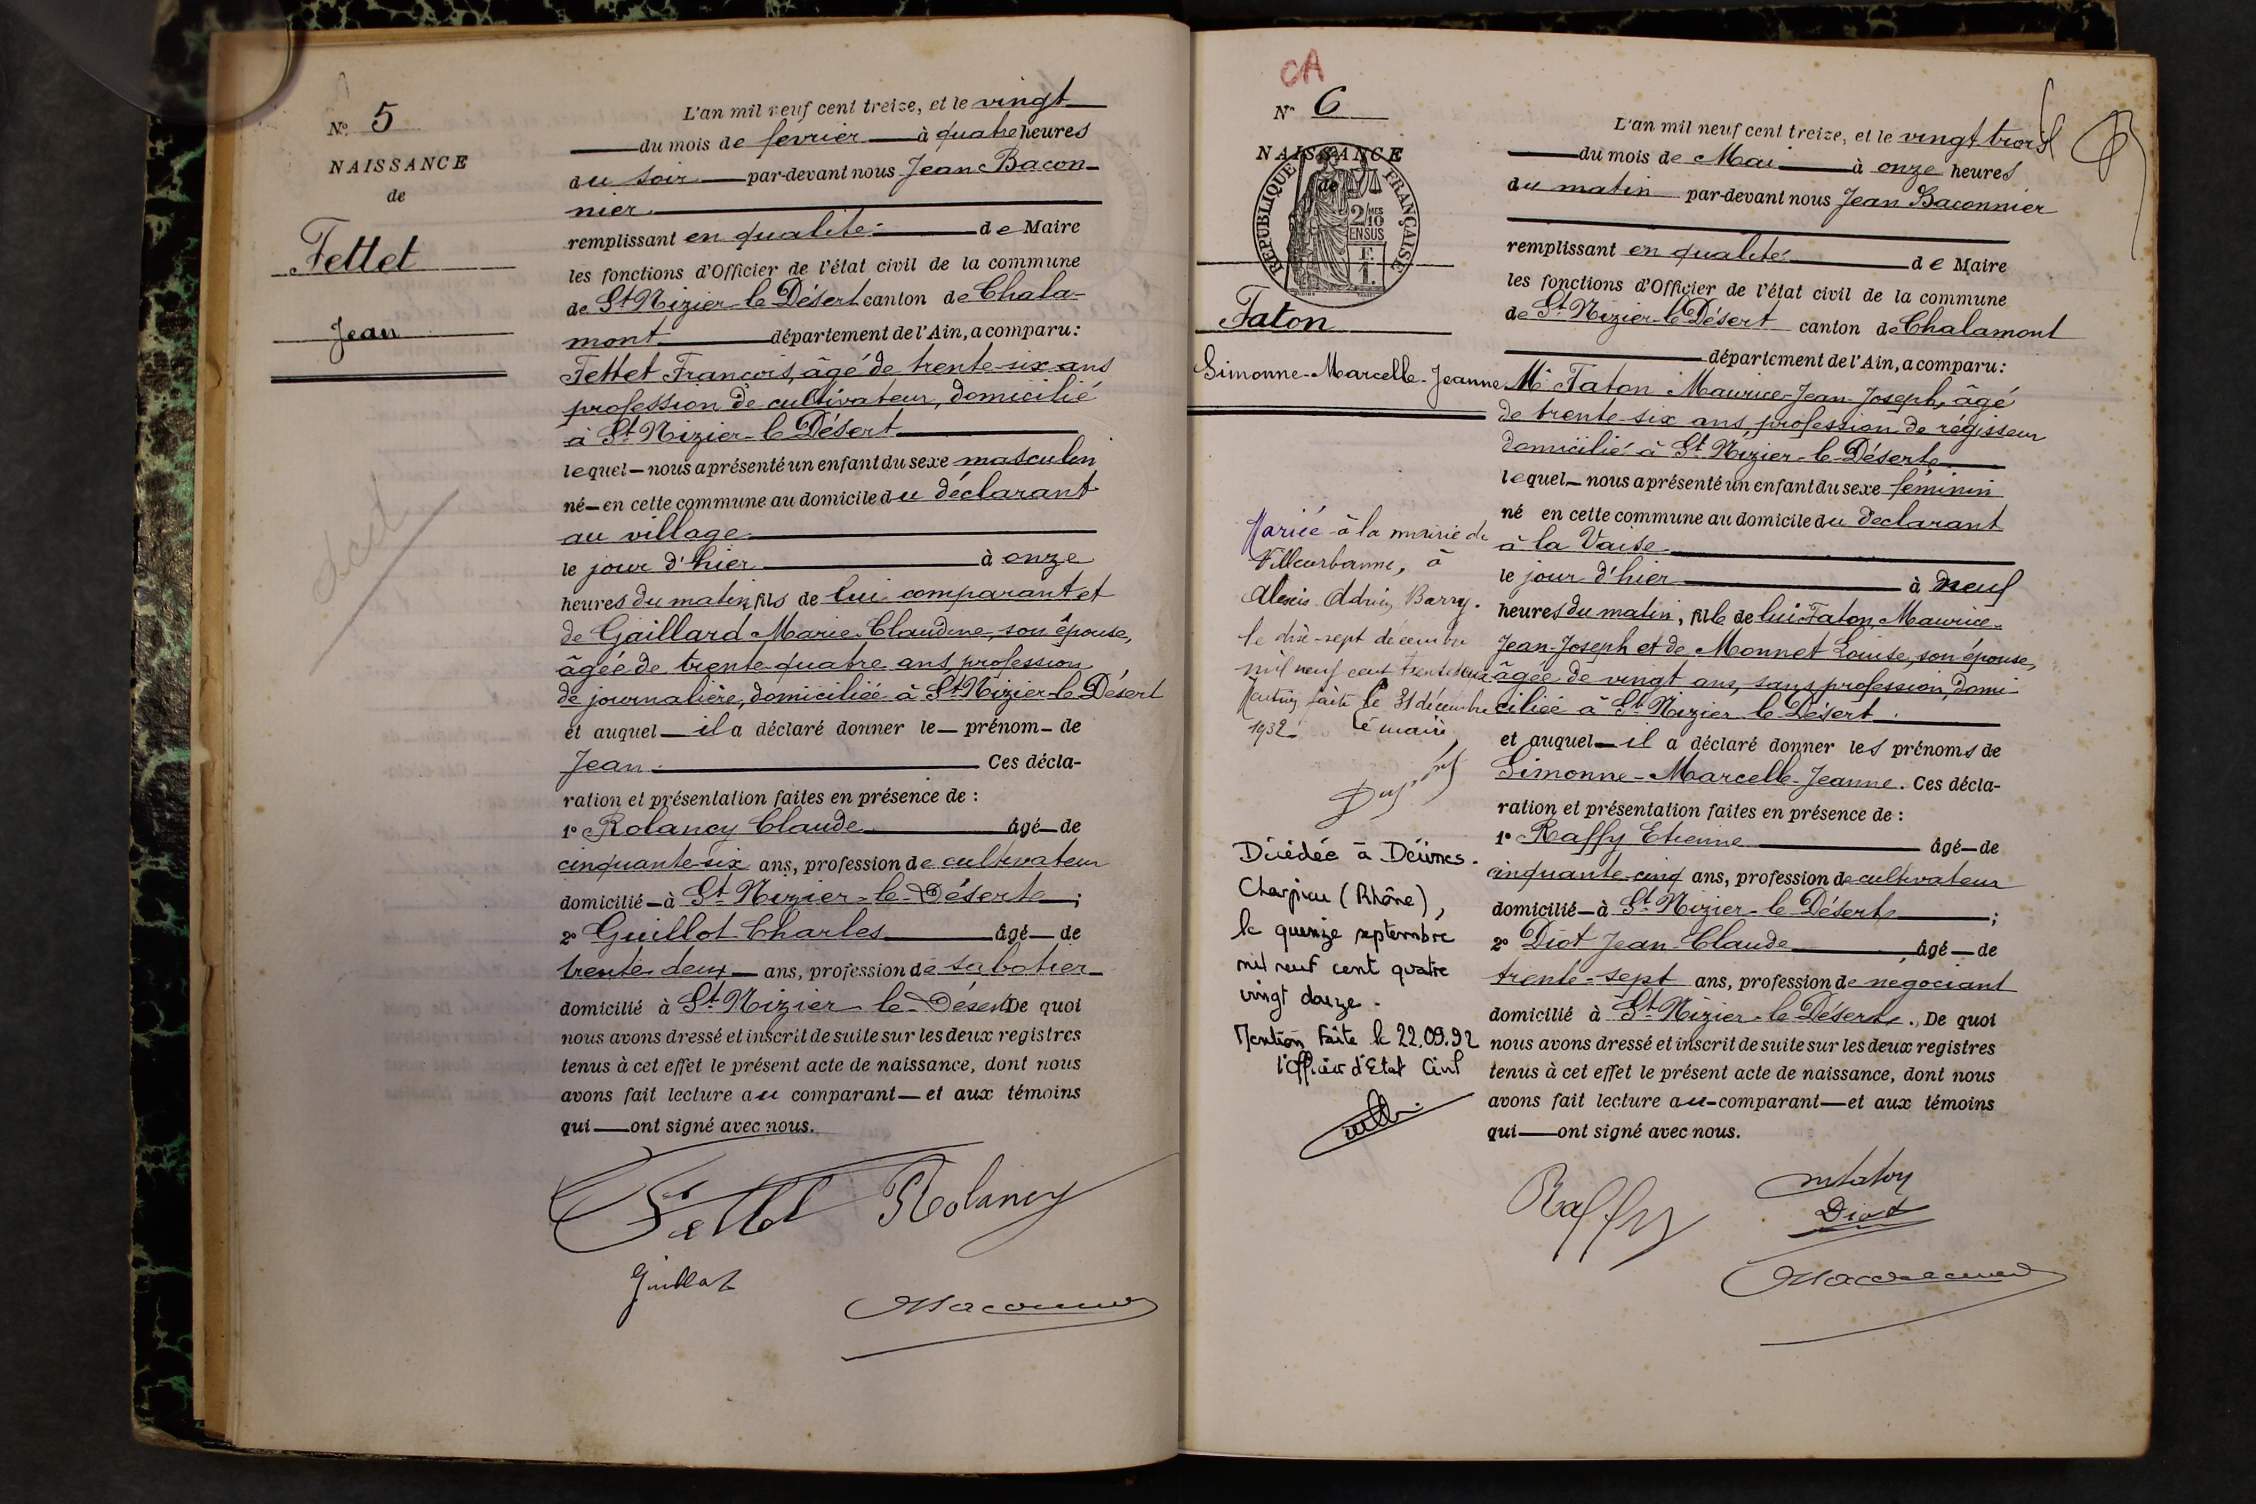 N° 5
NAISSANCE
de
Fettet
Jean
décédé
L'an mil neuf cent treize, et le vingt
du mois de février à quatre heures
du soir par-devant nous Jean Bacon-
nier
remplissant en qualité de Maire
les fonctions d'Officier de l'état civil de la commune
de St Nizier-le Désert canton de Chala-
mont département de l'Ain, a comparu:
Fettet François, âgé de trente-six ans
profession de cultivateur, domicilié
à St Nizier-le Désert
lequel nous a présenté un enfant du sexe masculin
né en cette commune au domicile du déclarant
au village
le jour d'hier à onze
heures du matin, fils de lui comparant et
de Gaillard Marie-Claudine, son épouse,
âgée de trente-quatre ans, profession
de journalière, domiciliée à St Nizier-le-Désert
et auquel il a déclaré donner le prénom de
Jean. Ces décla-
ration et présentation faites en présence de :
1° Rolancy Claude âgé de
cinquante-six ans, profession de cultivateur
domicilié à St Nizier-le-Désert ;
2° Guillot Charles âgé de
trente deux ans, profession de sabotier
domicilié à St Nizier-le-Désert De quoi
nous avons dressé et inscrit de suite sur les deux registres
tenus à cet effet le présent acte de naissance, dont nous
avons fait lecture au comparant et aux témoins
qui ont signé avec nous.
Fettet Rolancy
Guillot
Baconnier
CA
N° 6
NAISSANCE
de
RÉPUBLIQUE FRANÇAISE
2/10 MES
EN SUS
1 F.
Faton
Simonne-Marcelle-Jeanne
Mariée à la mairie de
Villeurbanne, à
Alexis Adrien Barry.
le dix-sept décembre
mil neuf cent trente deux
Mention faite le 31 décembre
1932 Le maire
Décédée à Décines-
Charpieu (Rhône),
le quinze septembre
mil neuf cent quatre
vingt douze.
Mention faite le 22.09.92
l'Officier d'Etat Civil
L'an mil neuf cent treize, et le vingt trois
du mois de Mai à onze heures
du matin par-devant nous Jean Baconnier
remplissant en qualité de Maire
les fonctions d'Officier de l'état civil de la commune
de St Nizier-le Désert canton de Chalamont
département de l'Ain, a comparu:
Mr Faton Maurice-Jean-Joseph, âgé
de trente-six ans, profession de régisseur
domicilié à St Nizier-le-Désert
lequel nous a présenté un enfant du sexe féminin
né en cette commune au domicile du déclarant
à la Vaise
le jour d'hier à neuf
heures du matin, fille de lui Faton Maurice-
Jean-Joseph et de Monnet Louise, son épouse,
âgée de vingt ans, sans profession, domi-
ciliée à St Nizier le Désert.
et auquel il a déclaré donner les prénoms de
Simonne-Marcelle-Jeanne. Ces décla-
ration et présentation faites en présence de :
1° Raffy Etienne âgé de
cinquante-cinq ans, profession de cultivateur
domicilié à St Nizier-le Désert ;
2° Diot Jean-Claude âgé de
trente-sept ans, profession de négociant
domicilié à St Nizier-le Désert. De quoi
nous avons dressé et inscrit de suite sur les deux registres
tenus à cet effet le présent acte de naissance, dont nous
avons fait lecture au comparant et aux témoins
qui ont signé avec nous.
Raffy
M Faton
Diot
Baconnier